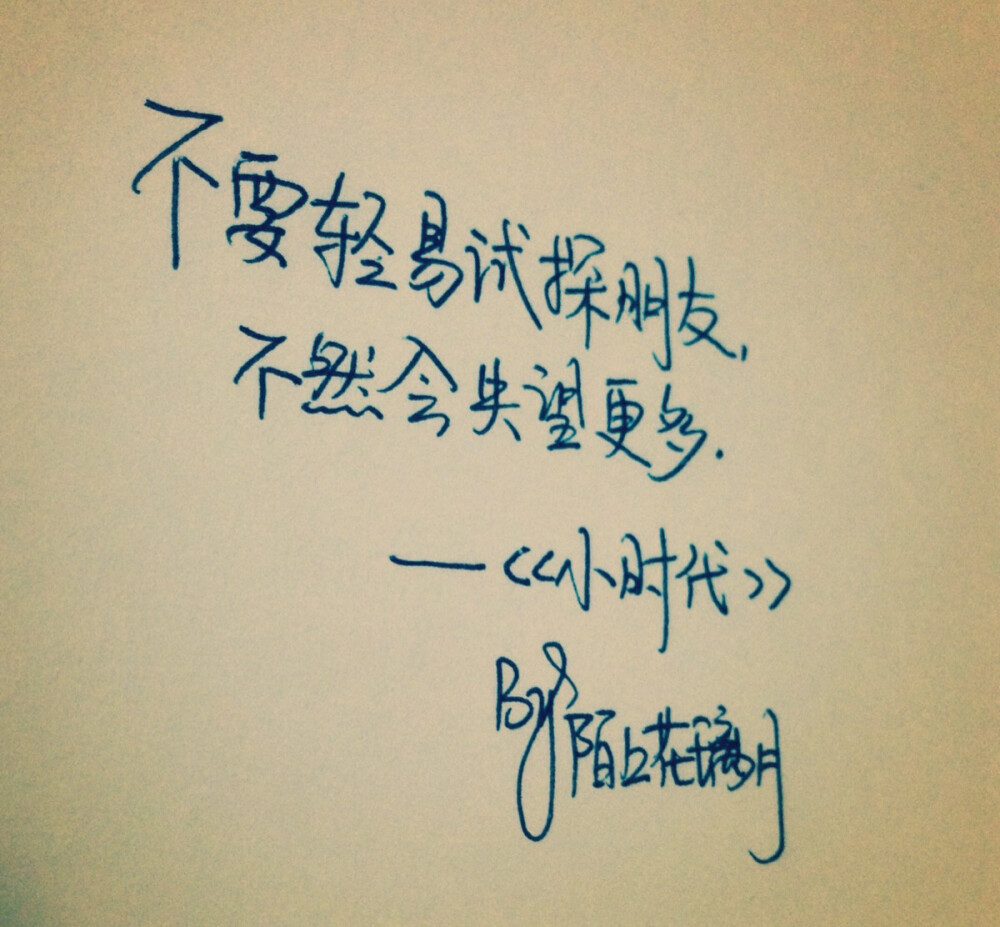 不要轻易试探朋友,
不然会失望更多.
—<<小时代>>
By 陌上花璃月